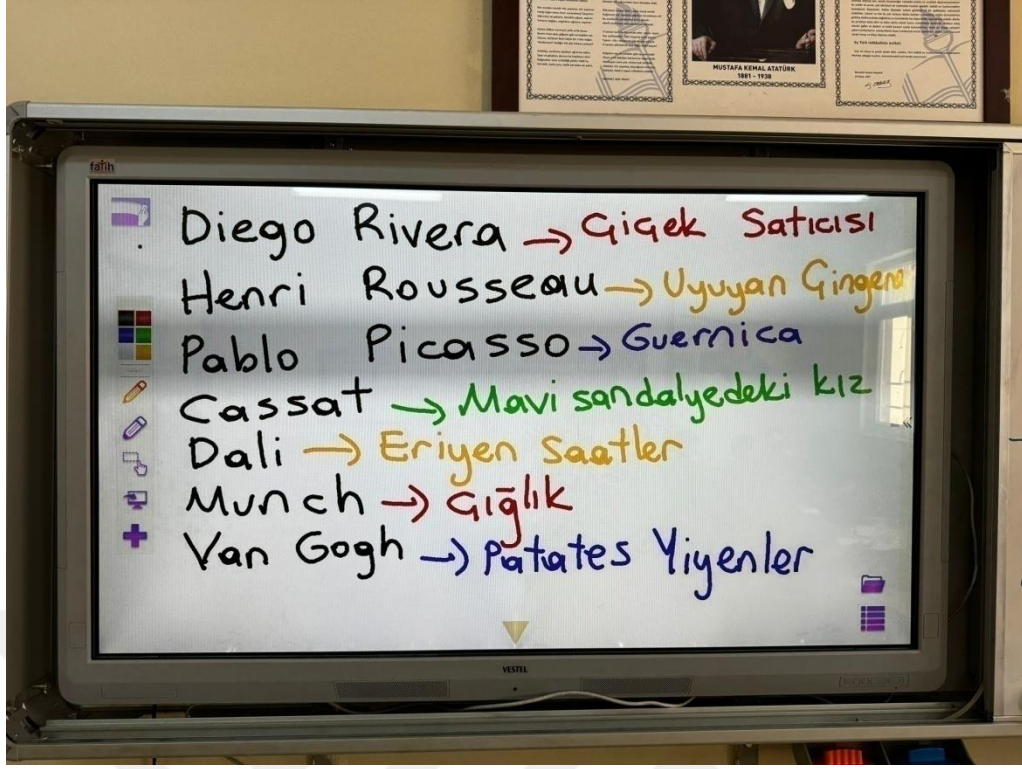 MUSTAFA KEMAL ATATÜRK
1881 - 1938
fatih
Diego Rivera → Çiçek Satıcısı
Henri Rousseau → Uyuyan Çingene
Pablo Picasso → Guernica
Cassat → Mavi sandalyedeki kız
Dali → Eriyen Saatler
Munch → Çığlık
Van Gogh → Patates Yiyenler
VESTEL